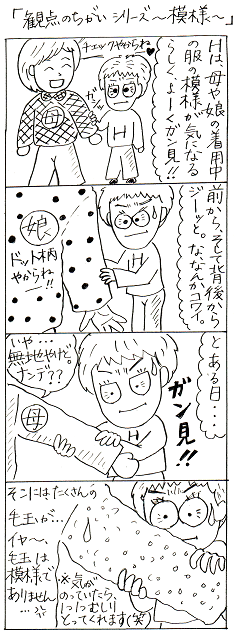 「観点のちがいシリーズ〜模様〜」
Hは、母や娘の着用中
の服の模様が気になる
らしく、よーくガン見!!
チェックやからね♥
ガシッ
母
H
前から、そして背後から
ジーッと。な、なんかコワイ。
娘
ドット柄
やからね
ー!!
H
とある日・・・
ガン見!!
いや…
無地やけど。
ナンデ??
母
H
そこにはたくさんの
毛玉が…
イヤ〜、
毛玉は
模様で
ありません
…💦
※気が
のっていたら、
1つ1つむしり
とってくれます(笑)